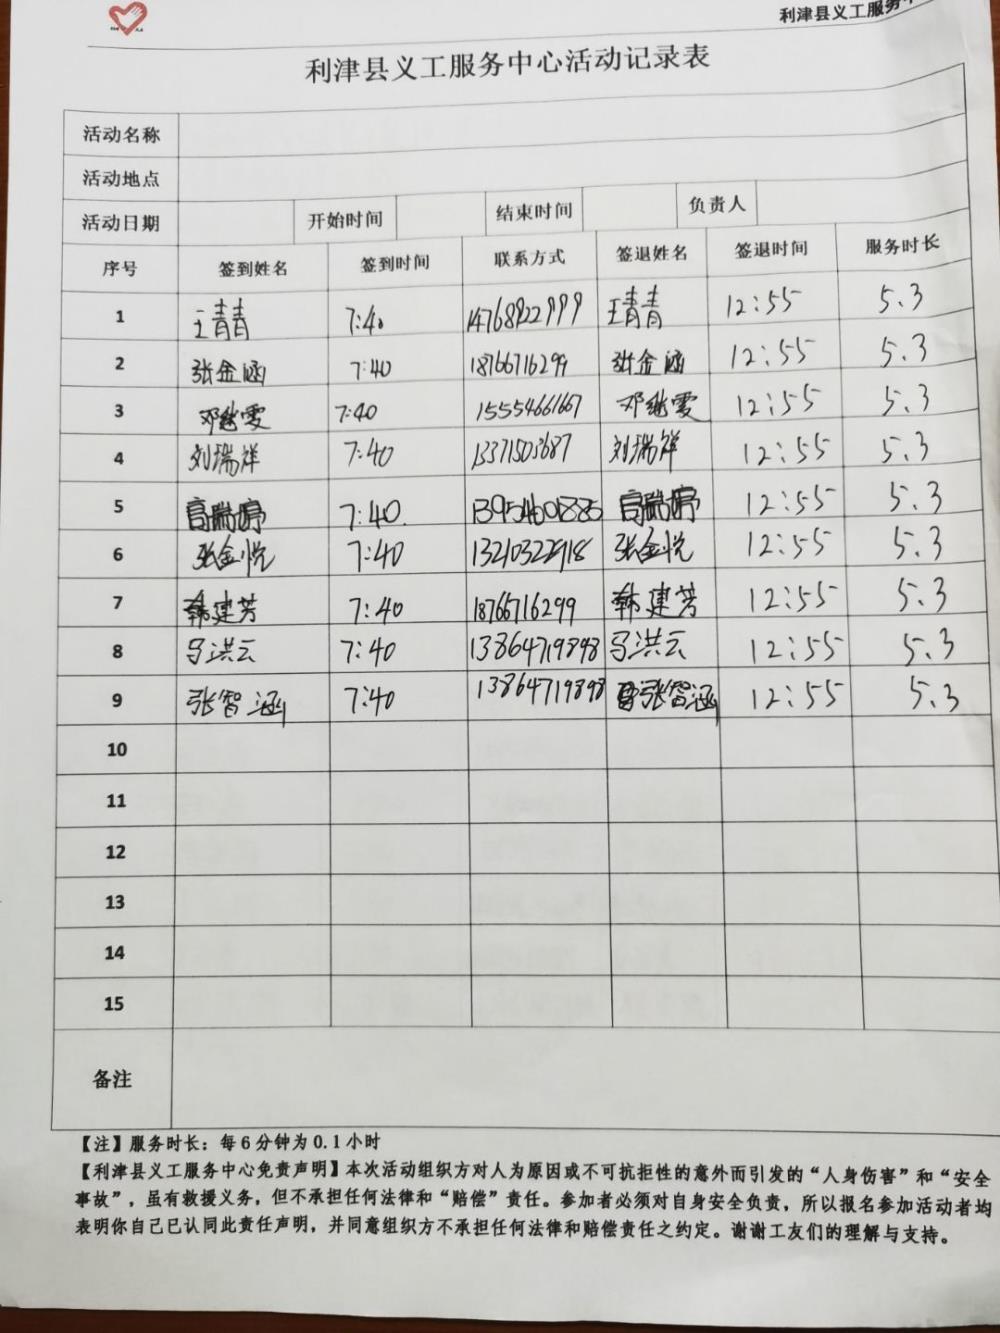 利津县义工服务中
利津县义工服务中心活动记录表
活动名称
活动地点
活动日期 开始时间 结束时间 负责人
序号 签到姓名 签到时间 联系方式 签退姓名 签退时间 服务时长
1 王青青 7:40 14768922999 王青青 12:55 5.3
2 张金涵 7:40 18766716299 张金涵 12:55 5.3
3 邓继雯 7:40 15554661667 邓继雯 12:55 5.3
4 刘瑞祥 7:40 13371503687 刘瑞祥 12:55 5.3
5 7:40. 13954601885 12:55 5.3
6 张金悦 7:40 张金悦 12:55 5.3
7 韩建芳 7:40 18766716299 韩建芳 12:55 5.3
8 马洪云 7:40 13864719898 马洪云 12:55 5.3
9 张智涵 7:40 13864719898 张智涵 12:55 5.3
10
11
12
13
14
15
备注
【注】服务时长：每6分钟为0.1小时
【利津县义工服务中心免责声明】本次活动组织方对人为原因或不可抗拒性的意外而引发的“人身伤害”和“安全
事故”，虽有救援义务，但不承担任何法律和“赔偿”责任。参加者必须对自身安全负责，所以报名参加活动者均
表明你自己已认同此责任声明，并同意组织方不承担任何法律和赔偿责任之约定。谢谢工友们的理解与支持。